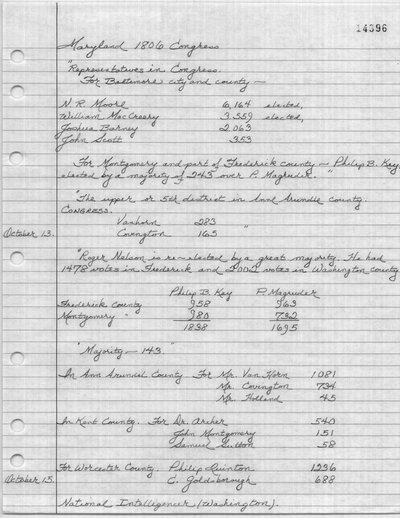 14396
Maryland 1806 Congress
"Representatives in Congress.
For Baltimore city and county —
N. R. Moore 6,164 elected,
William MacCreery 3.559 elected,
Joshua Barney 2.063
John Scott .353
For Montgomery and part of Frederick county — Philip B. Key
elected by a majority of 245 over P. Magruder."
"The upper or 5th district in Ann Arundle county.
CONGRESS.
Vanhorn 283
October 13. Covington 165 "
"Roger Nelson is re-elected by a great majority. He had
1478 votes in Frederick and 2002 votes in Washington county
Philip B. Key P. Magruder
Frederick County 958 963
Montgomery " 980 732
1838 1695
"Majority — 143."
In Ann Arundel County. For Mr. Van Horn 1081
Mr. Covington 734
Mr. Holland 45
In Kent County. For Dr. Archer 540
John Montgomery 151
Samuel Sutton 58
For Worcester County. Philip Quinton 1236
October 15. C. Goldsborough 688
National Intelligencer (Washington).